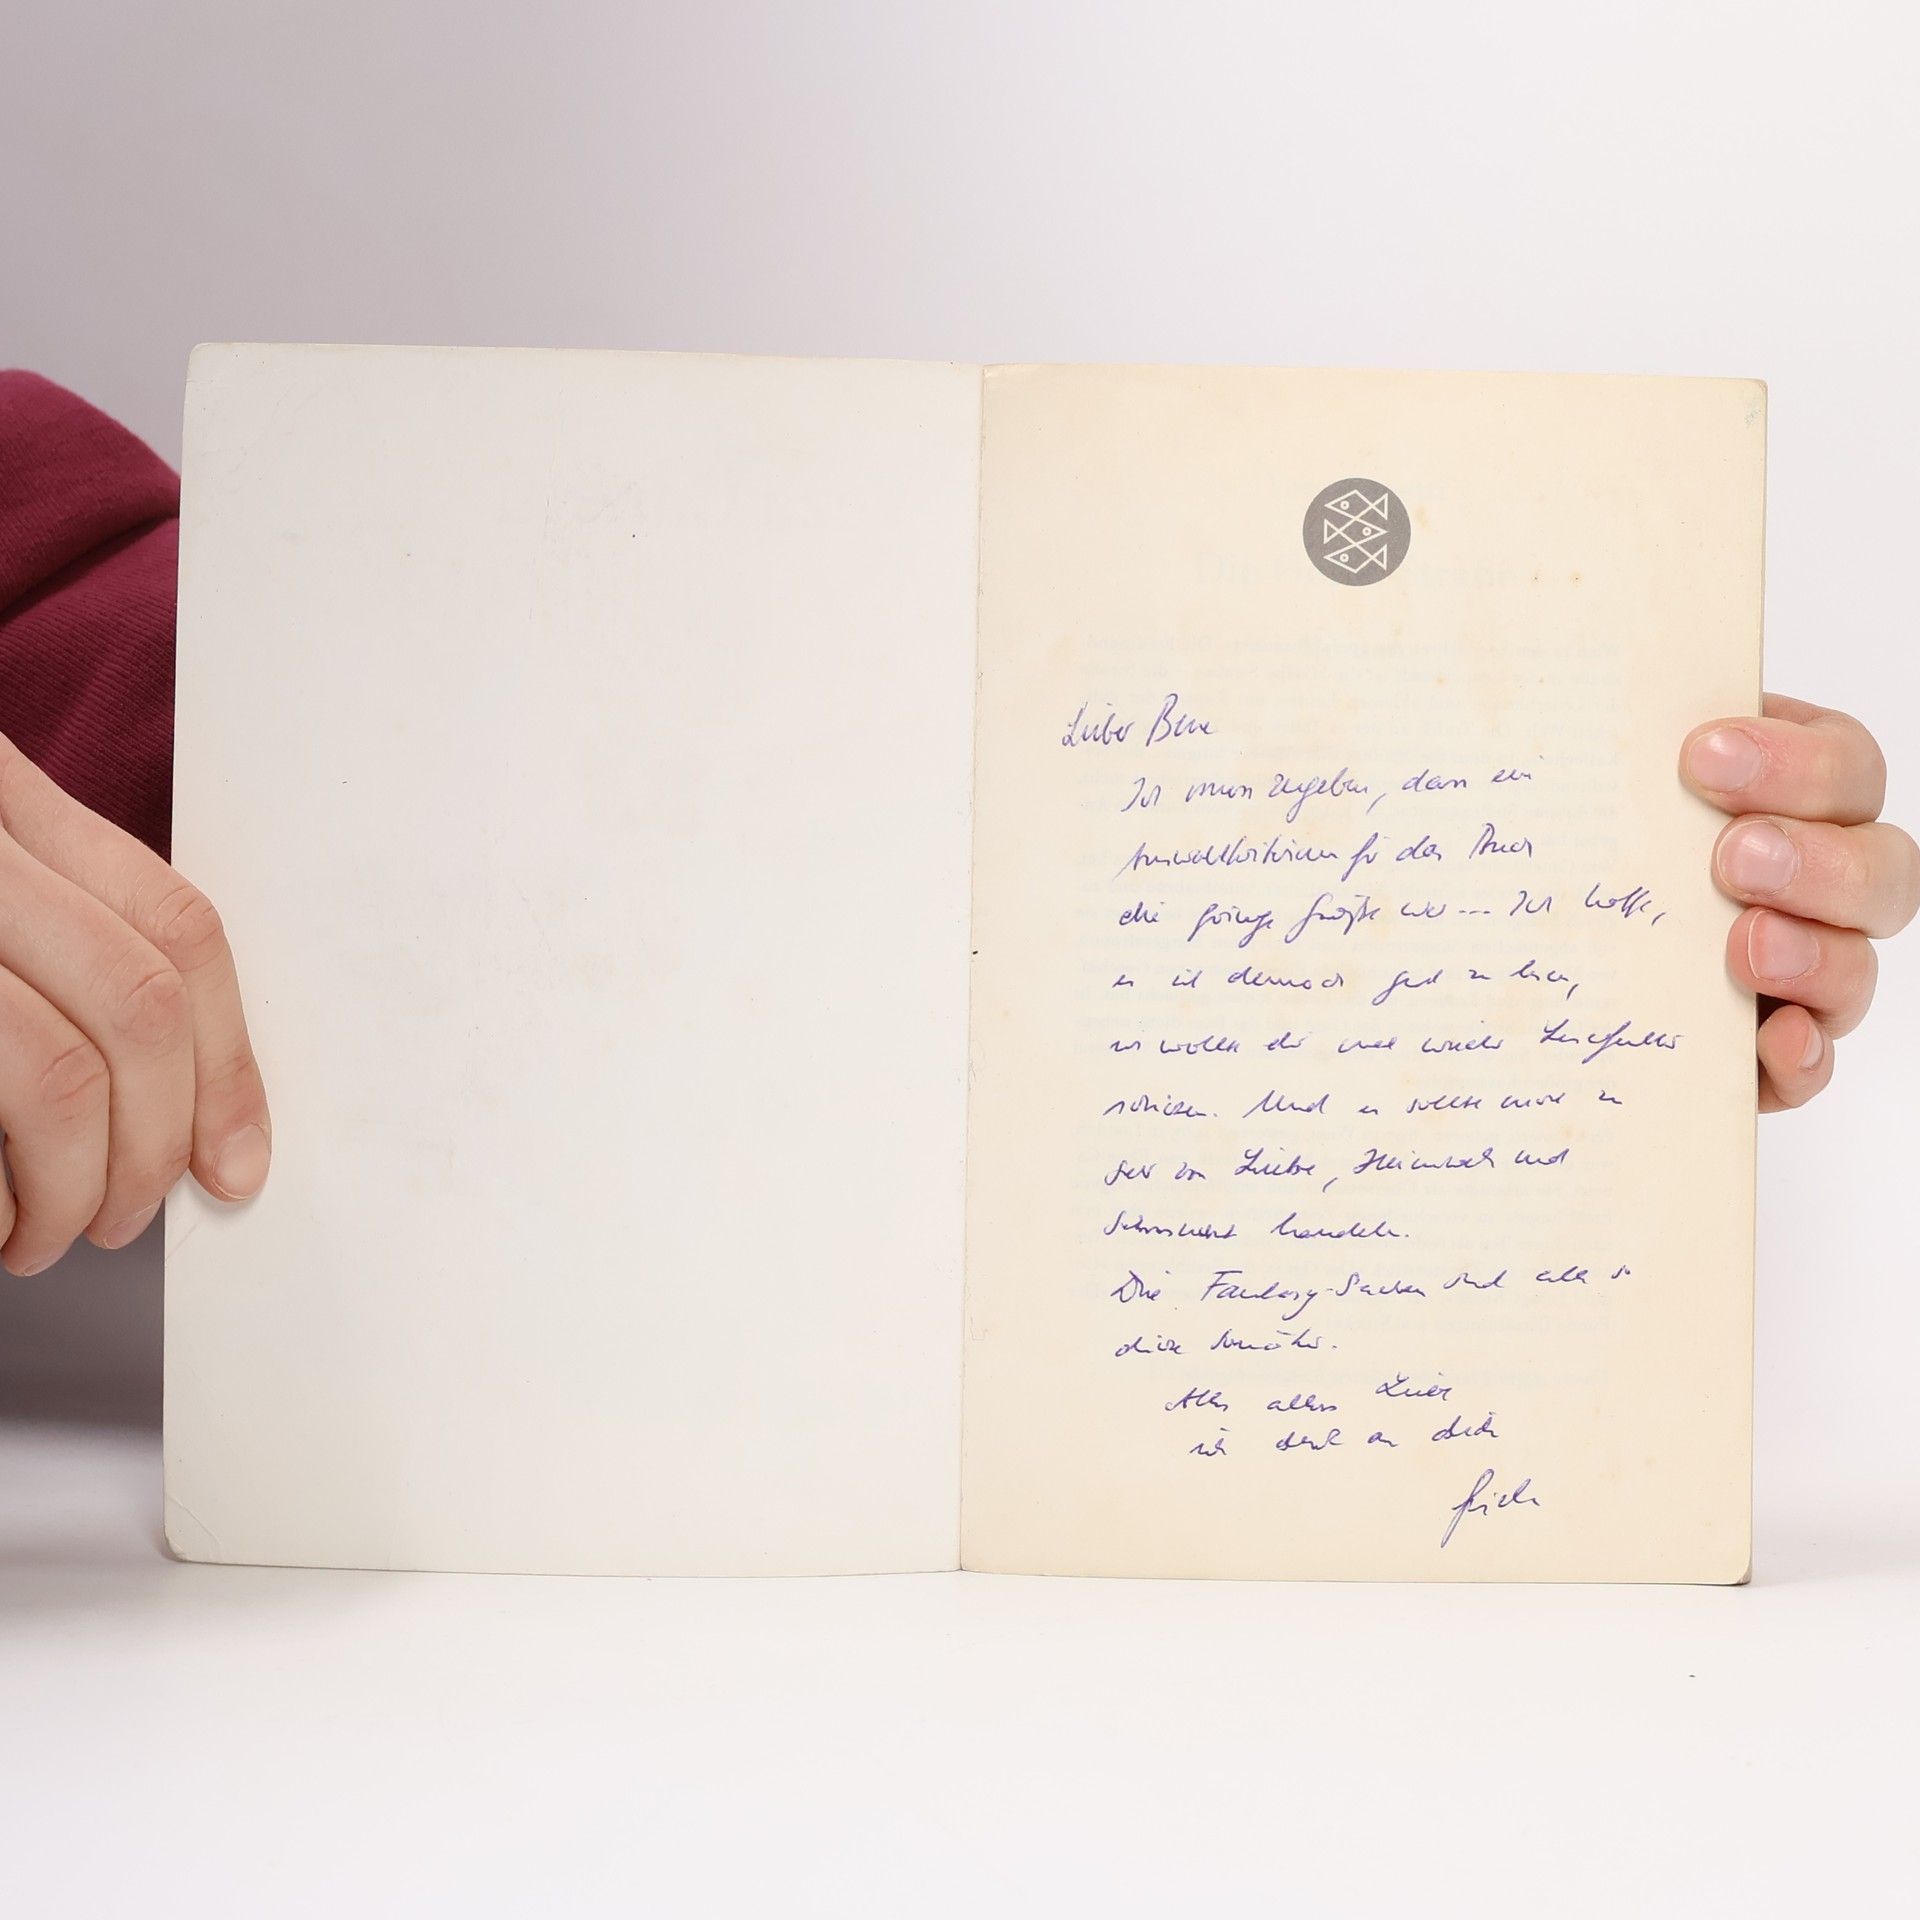 Lieber Bene
Ich muss zugeben, dass ein
Auswahlkriterium für das Buch
die geringe Größe war... Ich hoffe,
es ist dennoch gut zu lesen,
ich wollte dir mal wieder Lesefutter
schicken. Und es sollte nicht zu
sehr von Liebe, Heimweh und
Sehnsucht handeln.
Die Fantasy-Sachen sind alle so
dicke
Alles alles Liebe
ich denk an dich